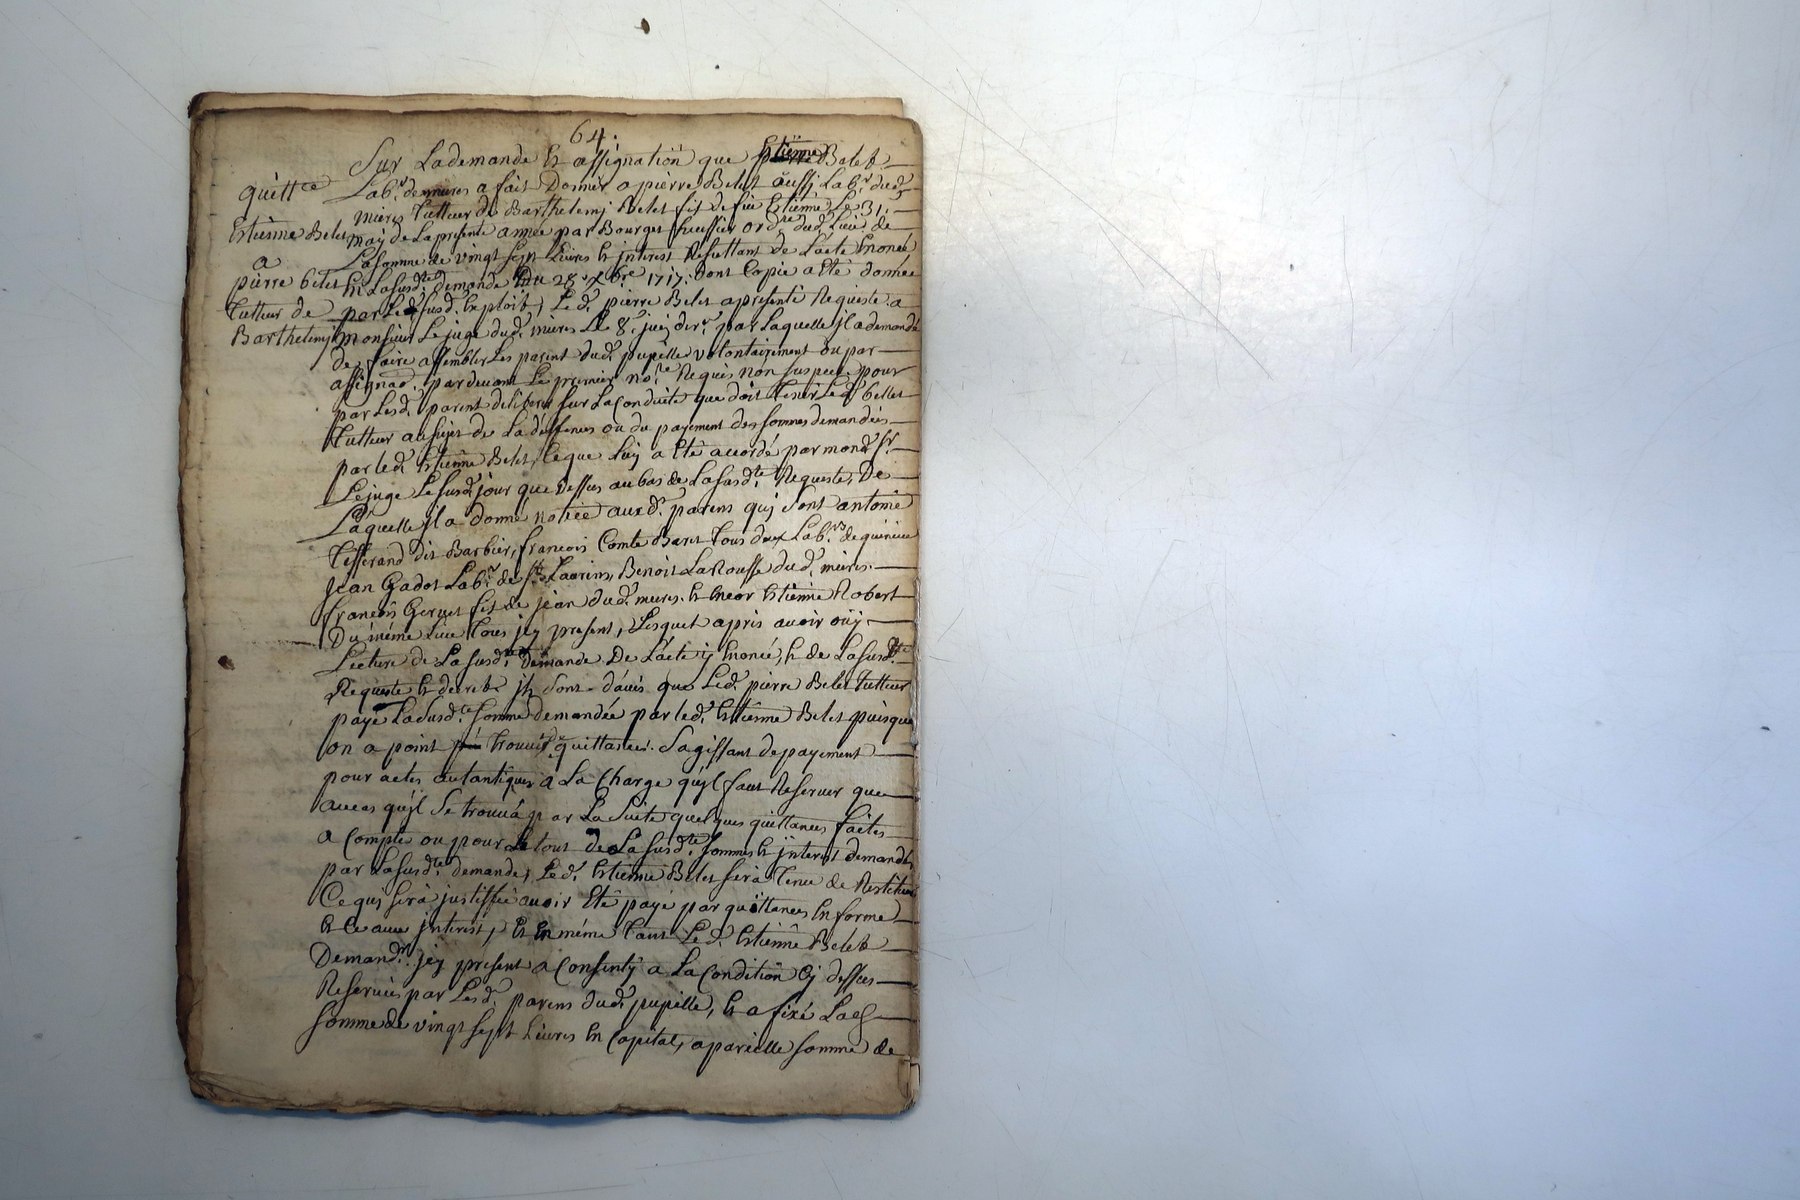 64.
Sur Lademande & assignation que Estienne Belet
quitt.ce
Lab.r demures a fait Donner a pierre Belet aussj Lab.r dud.
mures Tutteur de Barthelemj Belet fis de feu Estienne Le 31.
Estienne Belet
may de La presente année par Bourget huissier ord.re dud. Lieu de
a
La somme de vingt sept Livres & jnterest Resultant de Lacte Enoncé
pierre belet
En La susd.te demande Du 28.e xbre 1717. dont Copie a Eté donnée
Tutteur de
par Le susd. Exploit, Led. pierre Belet a presenté Requeste a
Barthelemj
monsieur Le juge dud. mures Le 8. juin der.r par Laquelle jl a demandé
de faire assembler Les parent dud. pupille volontairement ou par
assignao. pardevant Le premier no.re Requis non suspect pour
par Lesd. parent deliberer sur La Conduite que doit tenir Led. bellet
Tutteur au sujet de La deffences ou du payement des sommes demandées
par led. Estienne Belet, ce que Luy a Eté accordé par mond. sr.
Le juge Le susd. jour que Dessus au bas de La susd.te Requeste, De
Laquelle jl a donné notice aux d. parens quj sont antoine
Tisserand dit Barbier, francois Comte Baret Tous deux Lab.rs de
Jean Gadot Lab.r de St. Benoit LaRousse dud. mures.
francois Gervet fis de jean dud. mures. & Encor Estienne Robert
Du même Lieu Tous jcy present, Lesquel apris avoir oüy
Lecture de La susd.te Demande De L'acte y Enoncé, & de La susd.te
Requeste & decret jls sont d'avis que Led. pierre Belet Tutteur
paye La Susd.te somme demandée par led. Estienne Belet puisque
on a point trouvé de quittances. Sagissant de payement
pour actes autantiques a La Charge quyl faut Reserver que
au cas quyl Se trouva par La Suite quelques quittances faites
a Compte ou pour Le tout de La susd.te somme & jnterest demandés
par La susd.te demande, Led. Estienne Belet sera Tenu de Restituer
Ce qui sera justiffié avoir Eté payé par quittances En forme
& Ce avec jnterest, & En même tant Led. Estienne Belet
Demand.r jcy present a Consenty a La Condition Cy dessus
Reservée par Lesd. parens dud. pupille, & a fixé Lad.
somme de vingt sept Livres En Capital, a pareille somme de